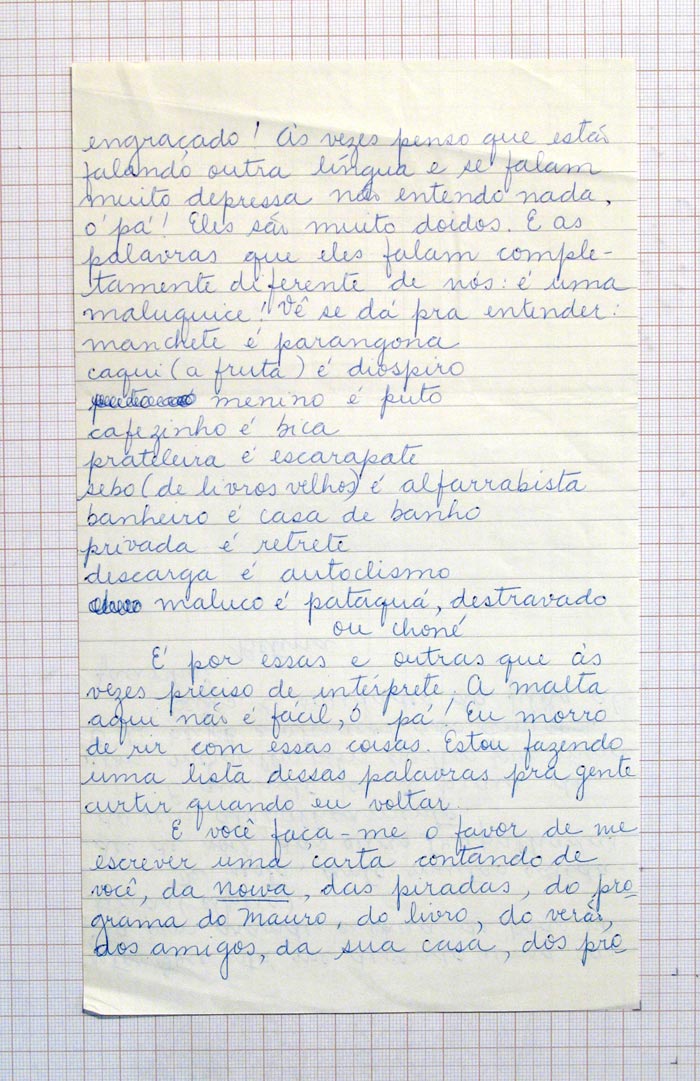 engraçado! Às vezes penso que estão
falando outra língua e se falam
muito depressa não entendo nada,
ó pá! Eles são muito doidos. E as
palavras que eles falam comple-
tamente diferente de nós: é uma
maluquice! Vê se dá pra entender:
manchete é parangona
caqui (a fruta) é diospiro
menino é puto
cafezinho é bica
prateleira é escarapate
sebo (de livros velhos) é alfarrabista
banheiro é casa de banho
privada é retrete
descarga é autoclismo
maluco é pataquá, destravado
ou choné
É por essas e outras que às
vezes preciso de intérprete. A malta
aqui não é fácil, ó pá! Eu morro
de rir com essas coisas. Estou fazendo
uma lista dessas palavras pra gente
curtir quando eu voltar.
E você faça-me o favor de me
escrever uma carta contando de
você, da noiva, das piradas, do pro-
grama do Mauro, do livro, do verão,
dos amigos, da sua casa, dos pro-